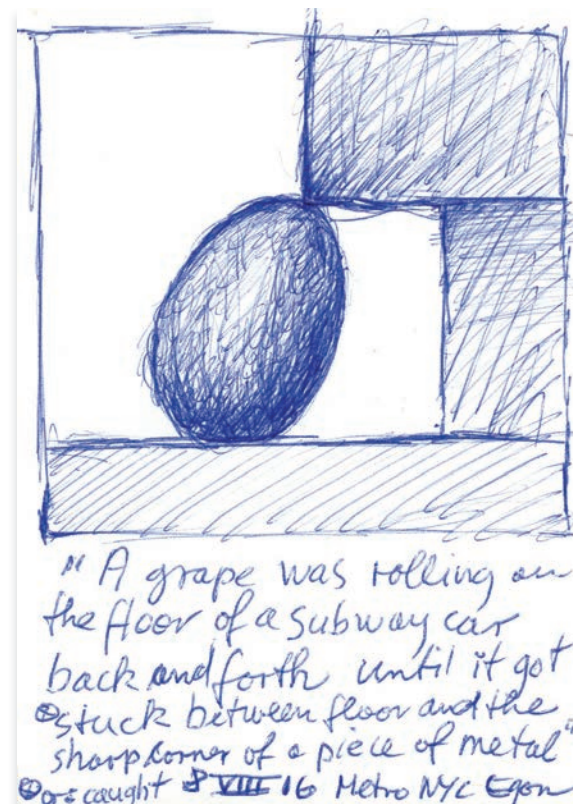 "A grape was rolling on
the floor of a subway car
back and forth until it got
⊗ stuck between floor and the
sharp corner of a piece of metal"
⊗ or: caught 8 VIII 16 Metro NYC Egon